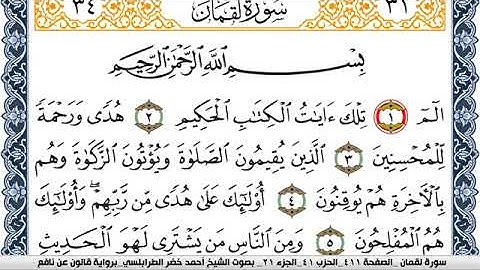 ٣٤ سُورَةُ لُقْمَانَ ٣١
بِسْمِ اللَّهِ الرَّحْمَٰنِ الرَّحِيمِ
أَلَٓمِّٓ ١ تِلْكَ ءَايَٰتُ الْكِتَٰبِ الْحَكِيمِ ٢ هُدىً وَرَحْمَةً
لِّلْمُحْسِنِينَ ٣ الَّذِينَ يُقِيمُونَ الصَّلَوٰةَ وَيُؤْتُونَ الزَّكَوٰةَ وَهُم
بِالْأَخِرَةِ هُمْ يُوقِنُونَ ٤ أُوْلَٰٓئِكَ عَلَىٰ هُدىً مِّن رَّبِّهِمْ وَأُوْلَٰٓئِكَ
هُمُ الْمُفْلِحُونَ ٥ وَمِنَ النَّاسِ مَنْ يَشْتَرِى لَهْوَ الْحَدِيثِ
سورة لقمان _الصفحة ٤١١_ الحزب ٤١_الجزء ٢١_ بصوت الشيخ أحمد خضر الطرابلسي_برواية قالون عن نافع